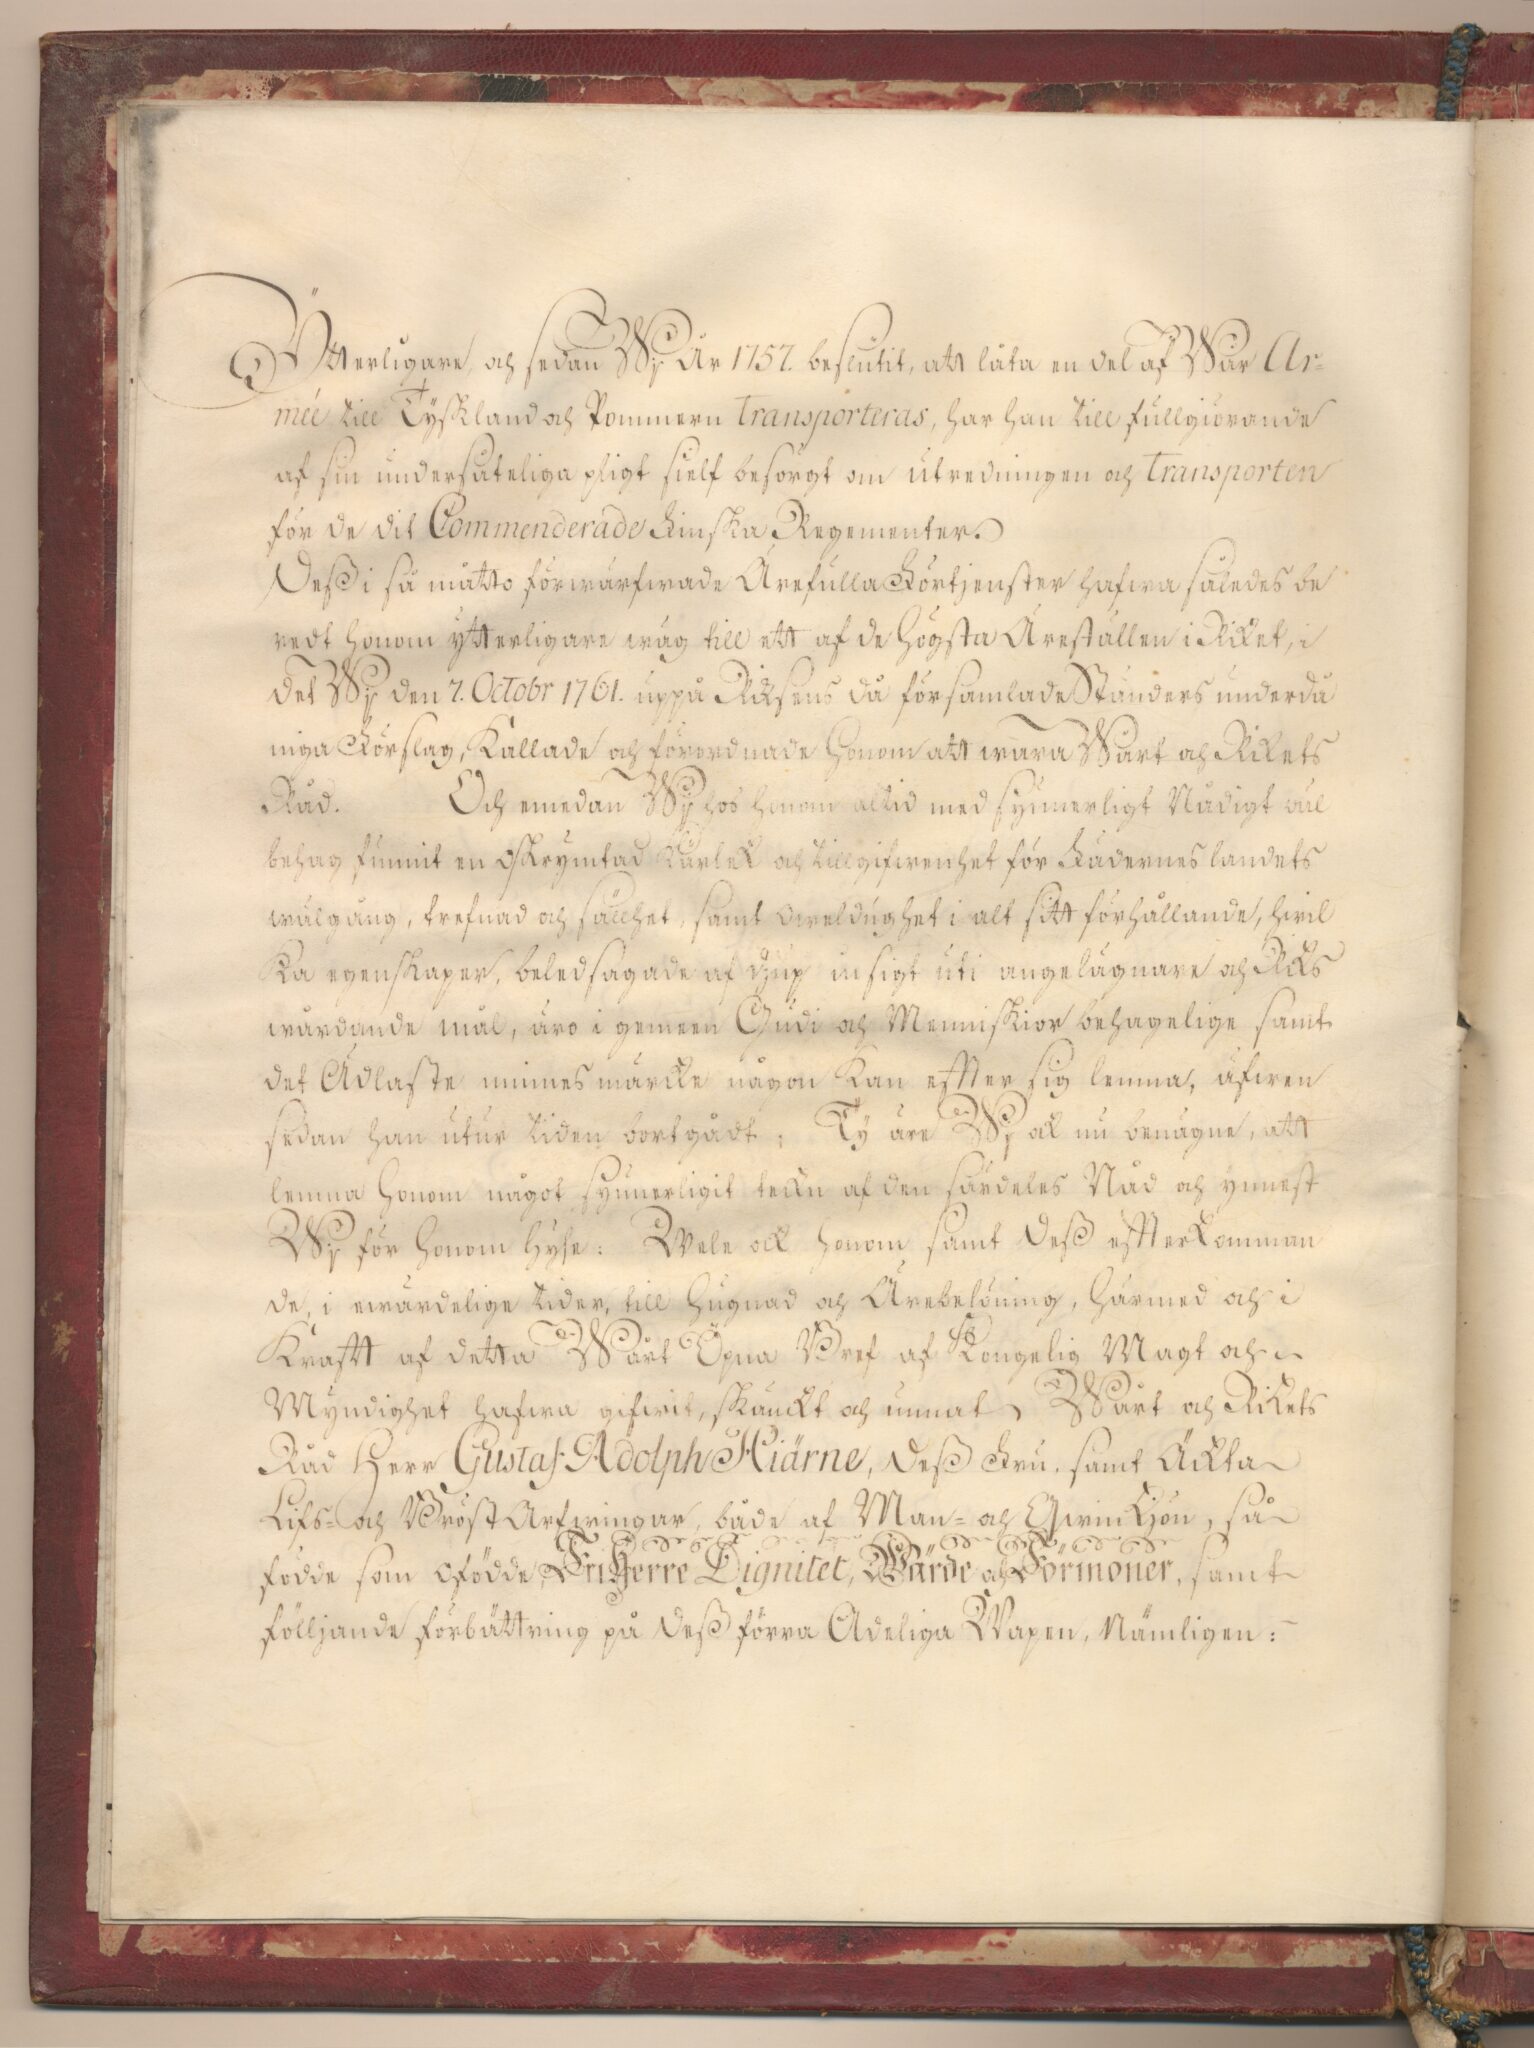 Ytterligare, och sedan Wij År 1757. beslutit, att låta en del af Wår Ar-
mée till Tyskland och Pommern transporteras, har han till fullgiörande
af sin undersåteliga pligt sielf besörgt om utredningen och transporten
för de dit Commenderade Finska Regementer.
Dess i så måtto förwärfwade Ärefulla Förtjenster hafwa således be
redt honom ytterligare wäg till ett af de högsta Äreställen i Riket, i
det Wij den 7. Octobr 1761. uppå Riksens då församlade Ständers underdå
niga Förslag, Kallade och förordnade honom att wara Wårt och Rikets
Råd. Och emedan Wij hos honom altid med synnerligt Nådigt wäl
behag funnit en oskrymtad Kärlek och tillgifwenhet för Fäderneslandets
wälgång, trefnad och sällhet, samt oweldughet i alt sitt förhållande, hwil
ka egenskaper, beledsagade af djup insigt uti angelägnare och Riks
wårdande mål, äro i gemeen Gudi och Menniskior behagelige samt
det Ädlaste minnesmärcke någon kan effter sig lemna, äfwen
sedan han utur tiden bortgådt; Ty äre Wij ock nu benägne, att
lemna honom något synnerligit teckn af den särdeles Nåd och ynnest
Wij för honom hyse: Wele ock honom samt Dess effterkomman
de, i ewärdelige tider, till hugnad och Ärebelöning, härmed och i
Krafft af detta Wårt Öpna Bref af Kongelig Magt och
Myndighet hafwa gifwit, skänckt och unnat, Wårt och Rikets
Råd Herr Gustaf Adolph Hiärne, Dess Fru, samt Äckta
Lifs- och Bröst Arfwingar, både af Man- och Qwinkjön, så
födde som ofödde, FriHerre Dignitet, Wärde och Förmoner, samt
följjande förbättring på Dess förra Adeliga Wapen, Nämligen: